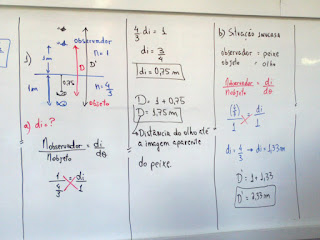 observador
1)
1m
n = 1
D'
D
0,75
1m
n = 4/3
objeto
a) di = ?
Nobservador / Nobjeto = di / do
1 / 4/3 = di / 1
4/3 di = 1
di = 3/4
di = 0,75 m
D = 1 + 0,75
D = 1,75 m
→ Distância do olho até
a imagem aparente
do peixe.
b) Situação inversa
observador = peixe
objeto = olho
Nobservador / Nobjeto = di / do
4/3 / 1 = di / 1
di = 4/3 → di = 1,33 m
D' = 1 + 1,33
D' = 2,33 m